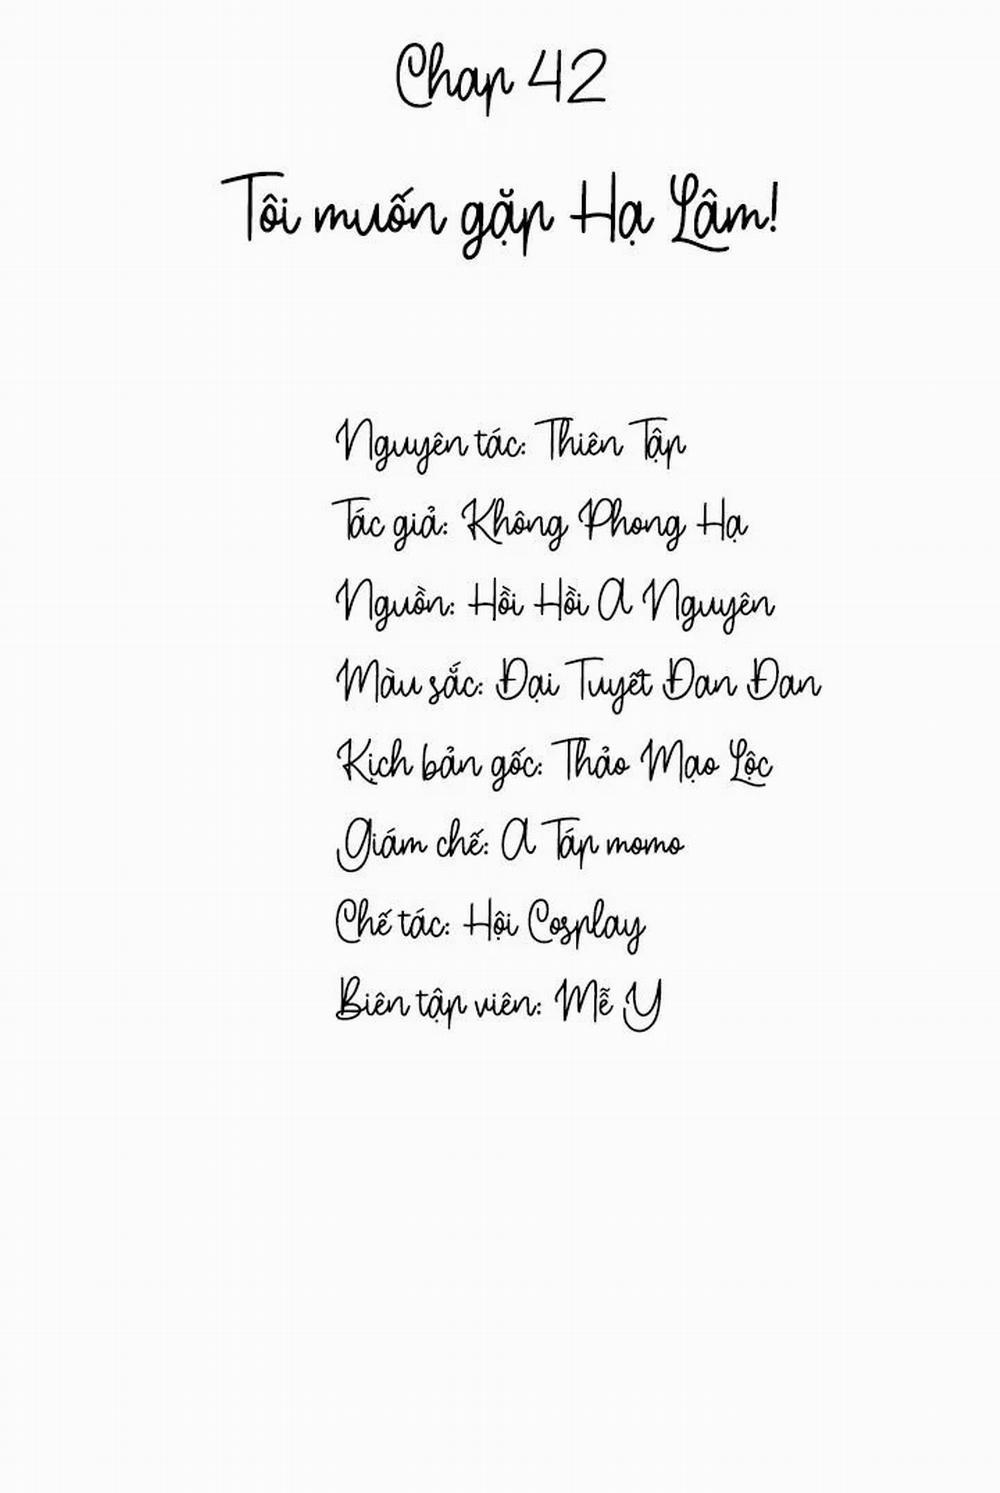 Chap 42
Tôi muốn gặp Hạ Lâm!
Nguyên tác: Thiên Tập
Tác giả: Không Phong Hạ
Nguồn: Hồi Hồi A Nguyên
Màu sắc: Đại Tuyết Đan Đan
Kịch bản gốc: Thảo Mạo Lộc
Giám chế: A Táp momo
Chế tác: Hội Cosplay
Biên tập viên: Mễ Y